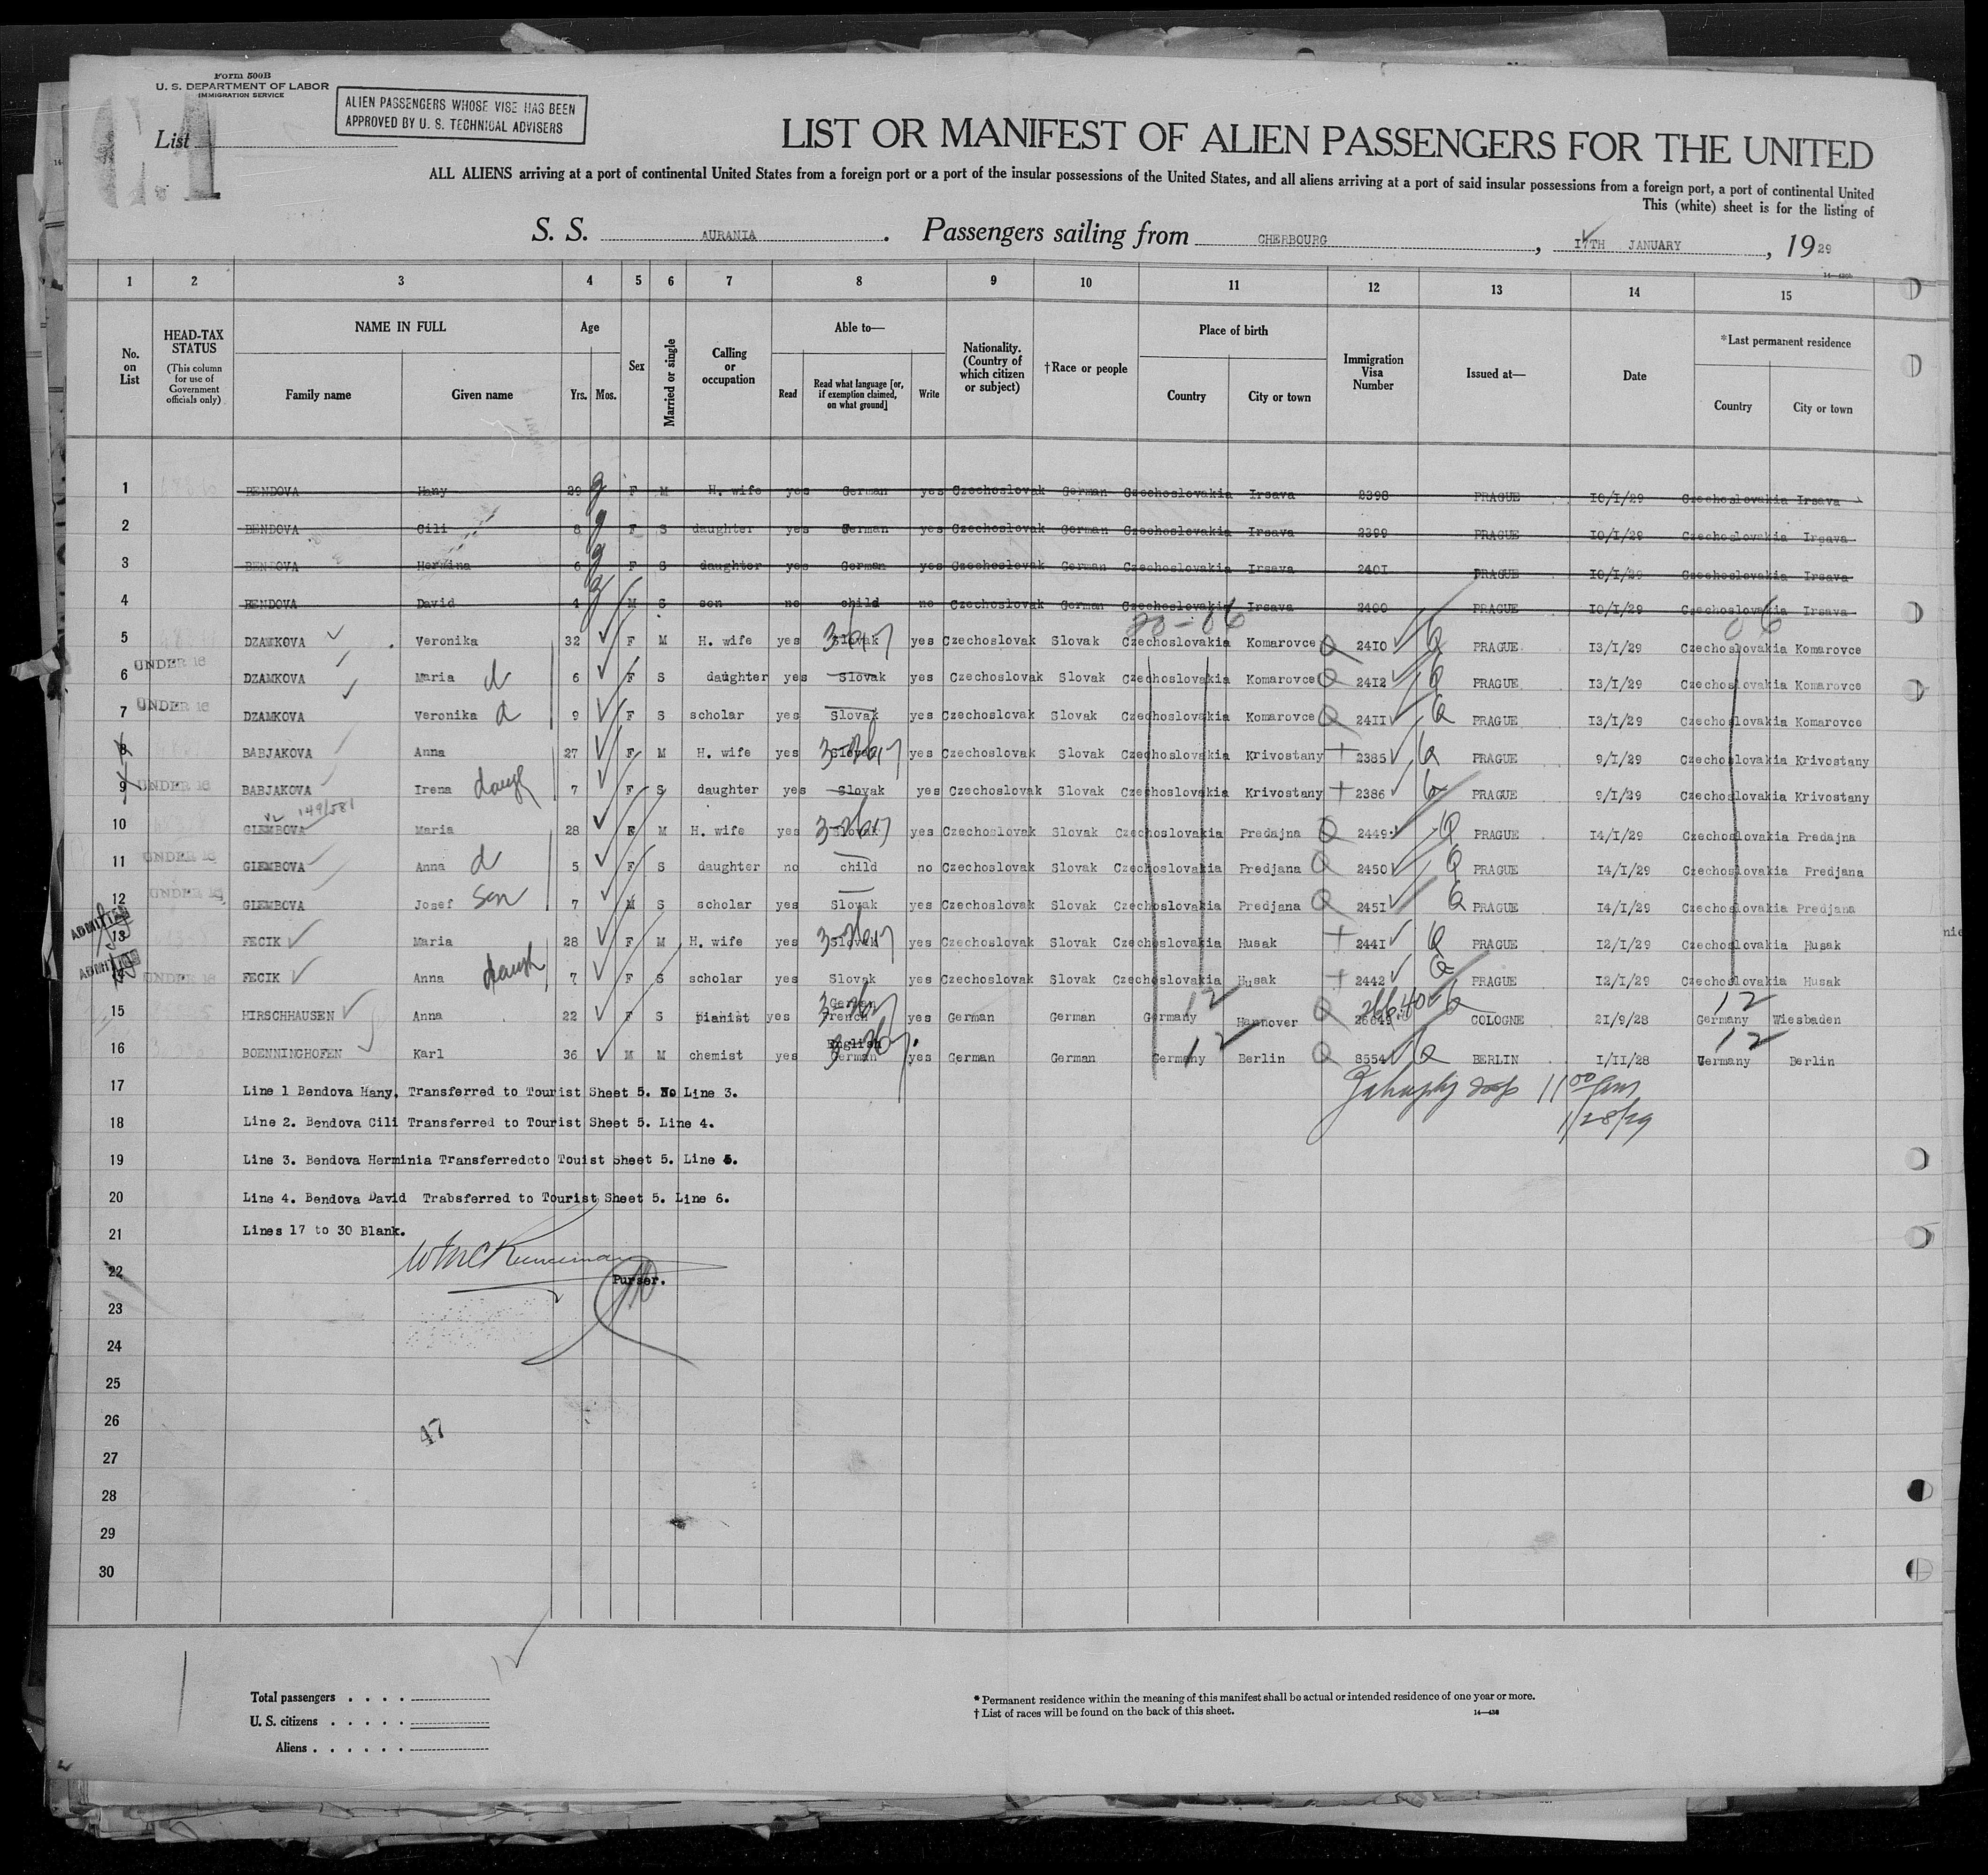 Form 500B
U. S. DEPARTMENT OF LABOR
IMMIGRATION SERVICE
List
ALIEN PASSENGERS WHOSE VISE HAS BEEN
APPROVED BY U. S. TECHNICAL ADVISERS
LIST OR MANIFEST OF ALIEN PASSENGERS FOR THE UNITED
ALL ALIENS arriving at a port of continental United States from a foreign port or a port of the insular possessions of the United States, and all aliens arriving at a port of said insular possessions from a foreign port, a port of continental United
This (white) sheet is for the listing of
S. S. AURANIA. Passengers sailing from CHERBOURG, 17TH JANUARY, 1929
14—430b
1 2 3 4 5 6 7 8 9 10 11 12 13 14 15
No. on List
HEAD-TAX STATUS (This column for use of Government officials only)
NAME IN FULL
Family name Given name
Age
Yrs. Mos.
Sex
Married or single
Calling or occupation
Able to—
Read Read what language [or, if exemption claimed, on what ground] Write
Nationality. (Country of which citizen or subject)
†Race or people
Place of birth
Country City or town
Immigration Visa Number
Issued at—
Date
*Last permanent residence
Country City or town
1 BENDOVA Hany 29 F M H. wife yes German yes Czechoslovak German Czechoslovakia Irsava 2398 PRAGUE 10/I/29 Czechoslovakia Irsava
2 BENDOVA Cili 8 F S daughter yes German yes Czechoslovak German Czechoslovakia Irsava 2399 PRAGUE 10/I/29 Czechoslovakia Irsava
3 BENDOVA Hermina 6 F S daughter yes German yes Czechoslovak German Czechoslovakia Irsava 240I PRAGUE 10/I/29 Czechoslovakia Irsava
4 BENDOVA David 4 M S son no child no Czechoslovak German Czechoslovakia Irsava 2400 PRAGUE 10/I/29 Czechoslovakia Irsava
5 DZAMKOVA Veronika 32 F M H. wife yes Slovak yes Czechoslovak Slovak Czechoslovakia Komarovce 24I0 PRAGUE I3/I/29 Czechoslovakia Komarovce
UNDER 16
6 DZAMKOVA Maria d 6 F S daughter yes Slovak yes Czechoslovak Slovak Czechoslovakia Komarovce 24I2 PRAGUE I3/I/29 Czechoslovakia Komarovce
UNDER 16
7 DZAMKOVA Veronika d 9 F S scholar yes Slovak yes Czechoslovak Slovak Czechoslovakia Komarovce 24II PRAGUE I3/I/29 Czechoslovakia Komarovce
8 BABJAKOVA Anna 27 F M H. wife yes Slovak yes Czechoslovak Slovak Czechoslovakia Krivostany 2385 PRAGUE 9/I/29 Czechoslovakia Krivostany
9 UNDER 16 BABJAKOVA Irena daugh 7 F S daughter yes Slovak yes Czechoslovak Slovak Czechoslovakia Krivostany 2386 PRAGUE 9/I/29 Czechoslovakia Krivostany
149/581
10 GLEMBOVA Maria 28 F M H. wife yes Slovak yes Czechoslovak Slovak Czechoslovakia Predajna 2449 PRAGUE I4/I/29 Czechoslovakia Predajna
11 UNDER 16 GLEMBOVA Anna d 5 F S daughter no child no Czechoslovak Slovak Czechoslovakia Predjana 2450 PRAGUE I4/I/29 Czechoslovakia Predjana
12 UNDER 16 GLEMBOVA Josef Son 7 M S scholar yes Slovak yes Czechoslovak Slovak Czechoslovakia Predjana 245I PRAGUE I4/I/29 Czechoslovakia Predjana
ADMITTED
13 FECIK Maria 28 F M H. wife yes Slovak yes Czechoslovak Slovak Czechoslovakia Husak 244I PRAGUE I2/I/29 Czechoslovakia Husak
ADMITTED
14 UNDER 16 FECIK Anna daugh 7 F S scholar yes Slovak yes Czechoslovak Slovak Czechoslovakia Husak 2442 PRAGUE I2/I/29 Czechoslovakia Husak
15 HIRSCHHAUSEN Anna 22 F S pianist yes German French yes German German Germany Hannover 26649 26640 COLOGNE 2I/9/28 Germany Wiesbaden
16 BOENNINGHOFEN Karl 36 M M chemist yes English German yes German German Germany Berlin 8554 BERLIN I/II/28 Germany Berlin
17 Line 1 Bendova Hany. Transferred to Tourist Sheet 5. No Line 3.
18 Line 2. Bendova Cili Transferred to Tourist Sheet 5. Line 4.
11 00 am
1/28/29
19 Line 3. Bendova Herminia Transferredcto Touist Sheet 5. Line 5.
20 Line 4. Bendova David Trabsferred to Tourist Sheet 5. Line 6.
21 Lines 17 to 30 Blank.
22
Purser.
23
24
25
26
47
27
28
29
30
Total passengers . . . .
U. S. citizens . . . . .
Aliens . . . . . .
* Permanent residence within the meaning of this manifest shall be actual or intended residence of one year or more.
† List of races will be found on the back of this sheet.
14—430